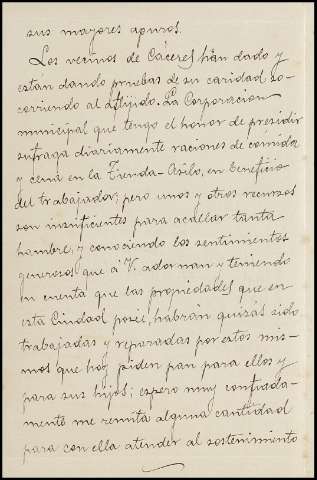 sus mayores apuros.
Los vecinos de Cáceres han dado y
están dando pruebas de su caridad so-
corriendo al afligido. La Corporacion
municipal que tengo el honor de presidir
sufraga diariamente raciones de comida
y cena en la Tienda-Asilo, en beneficio
del trabajador; pero unos y otros recursos
son insuficientes para acallar tanta
hambre, y conociendo los sentimientos
generosos que á V. adornan y teniendo
en cuenta que las propiedades que en
esta Ciudad posée, habrán quizás sido
trabajadas y reparadas por estos mis-
mos que hoy piden pan para ellos y
para sus hijos; espero muy confiada-
mente me remita alguna cantidad
para con ella atender al sostenimiento